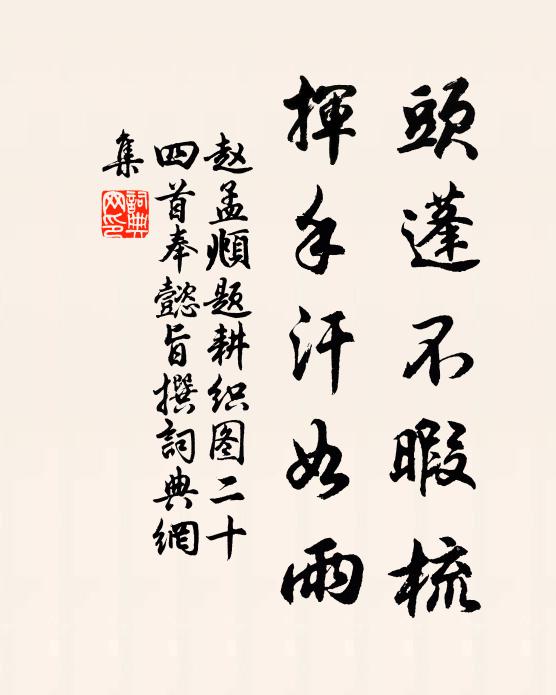 頭蓬不暇梳
揮手汗如雨
赵孟頫题耕织图二十
四首奉懿旨撰詞典網
集
詞典網印